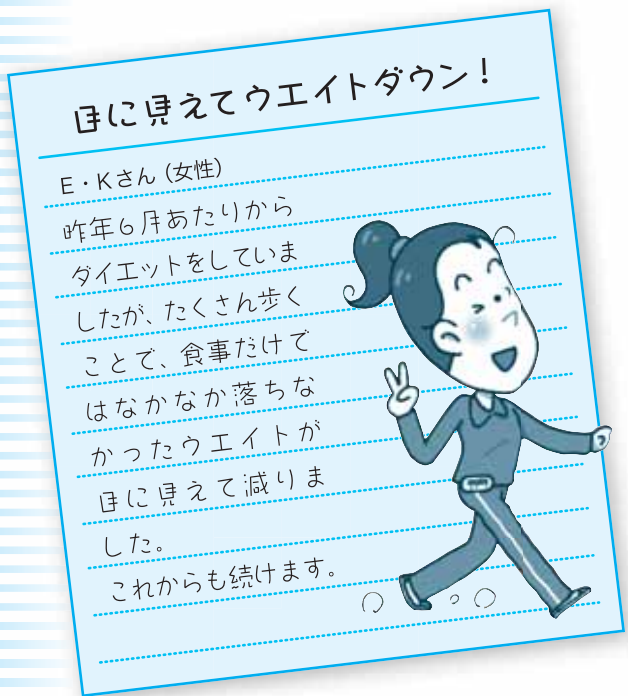 目に見えてウエイトダウン！
E・Kさん（女性）
昨年6月あたりから
ダイエットをしていま
したが、たくさん歩く
ことで、食事だけで
はなかなか落ちな
かったウエイトが
目に見えて減りま
した。
これからも続けます。